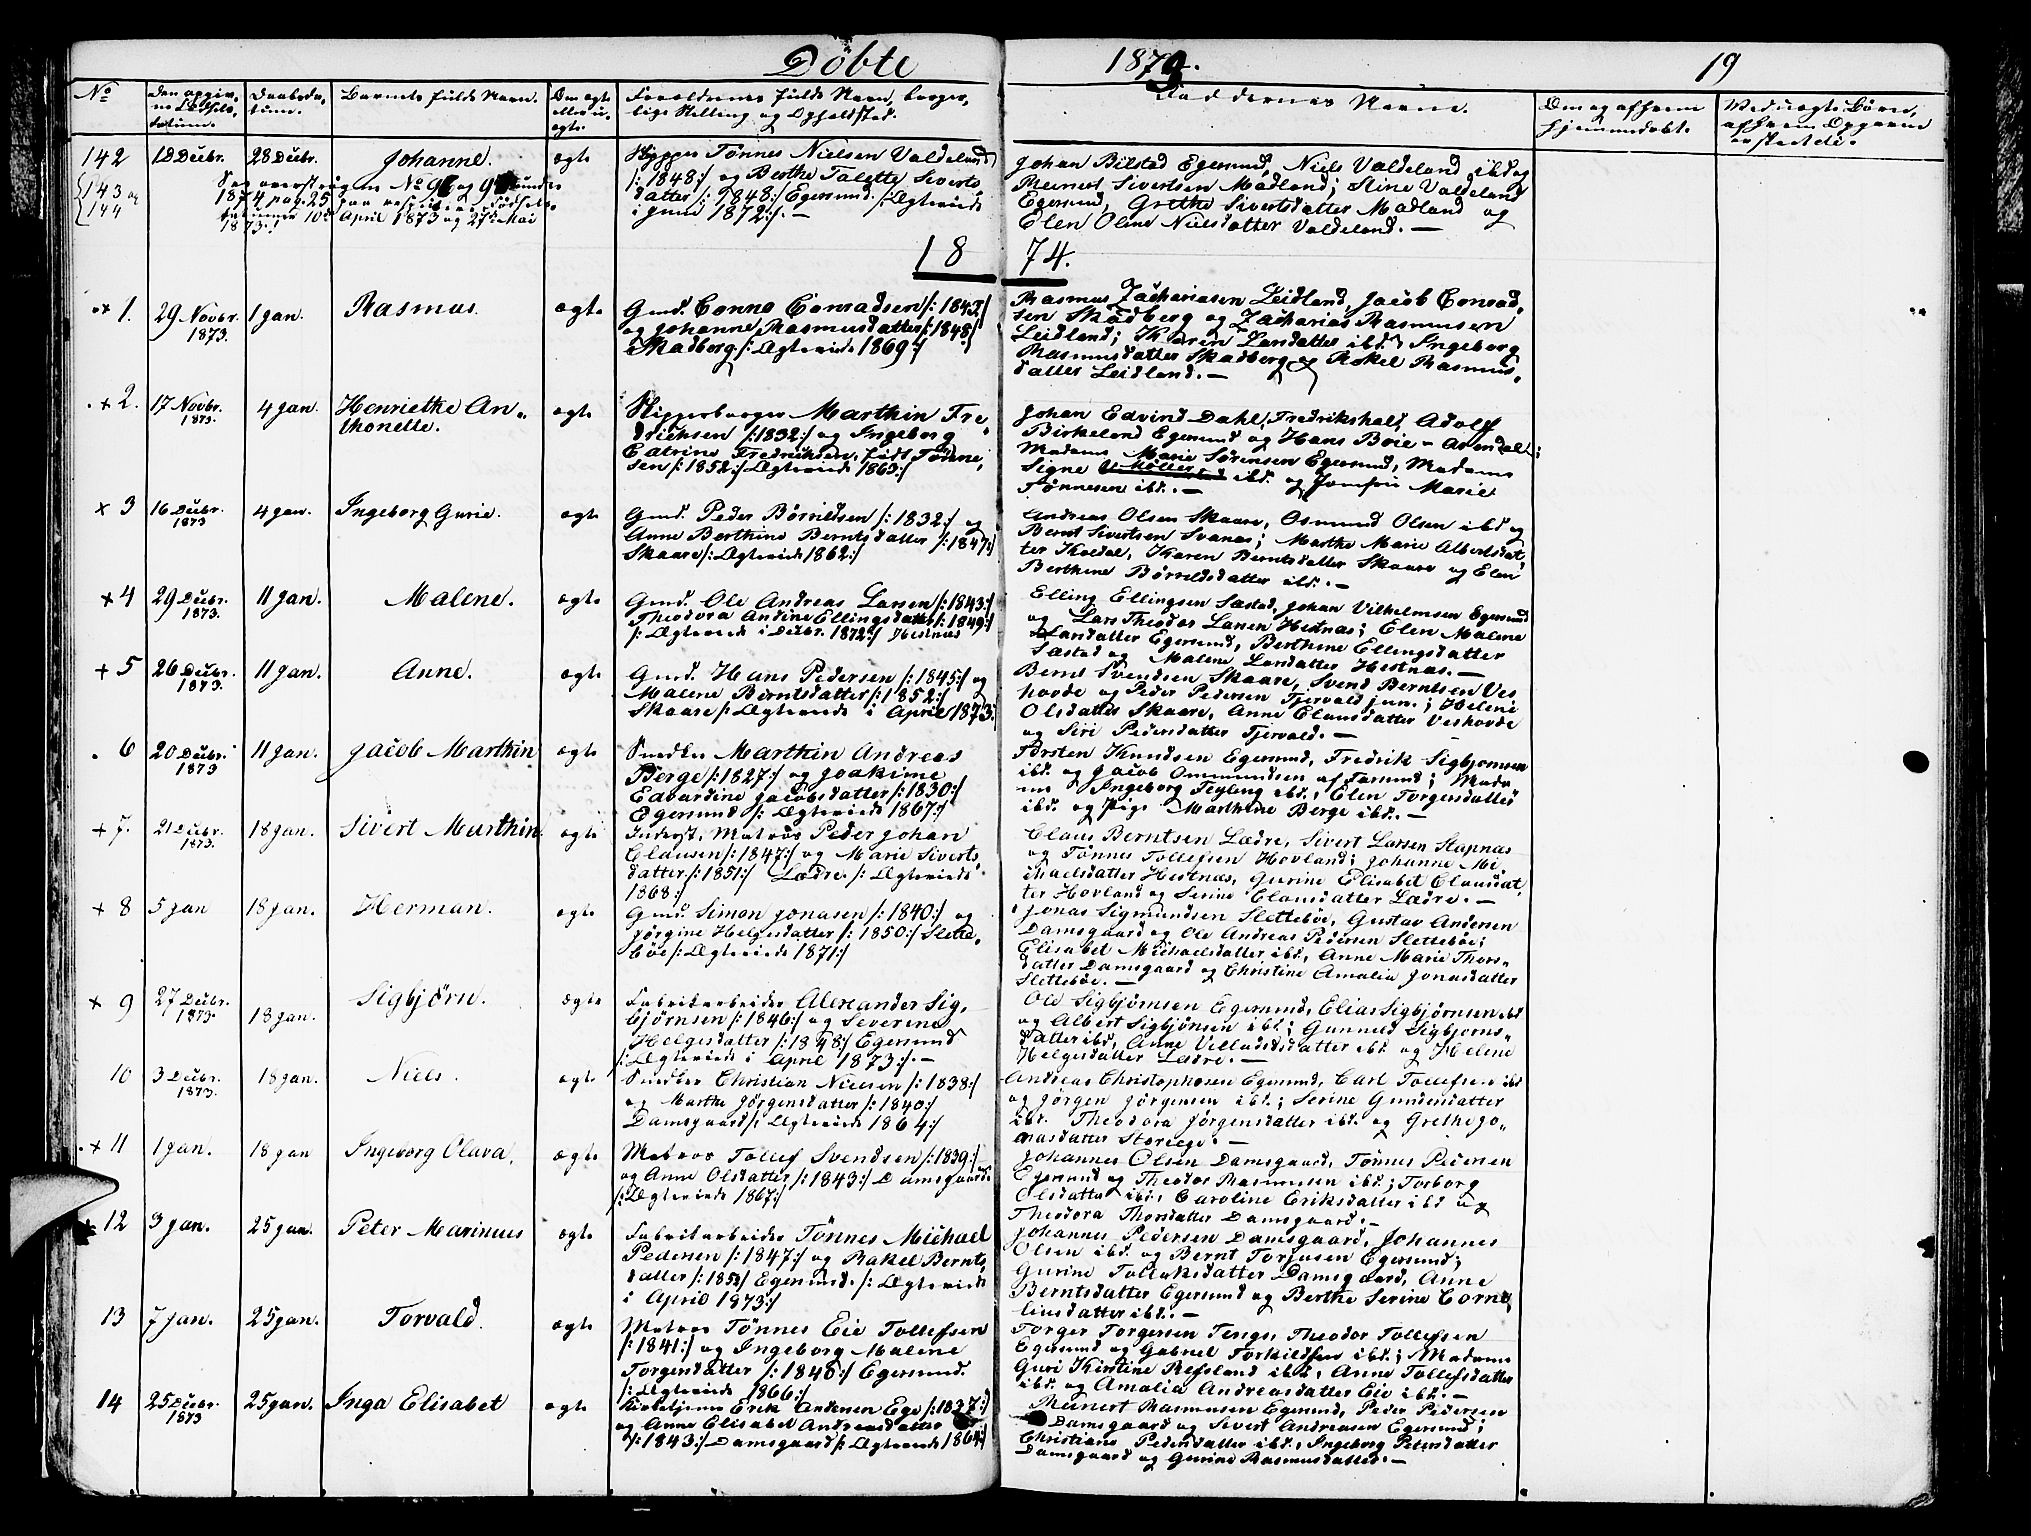 Döbte 1873. 19
No
Den opgiv,
ne Födsels,
datum.
Daabsda,
tum.
Barnets fulde Navn.
Om ægte
eller u,
ægte.
Forældrenes fulde Navn, borger,
lige Stilling og Opholdsted.
Faddernes Navne.
Om og af hvem
hjemmedöbt.
Ved uægte Börn,
af hvem Opgaven
er skeet
142 12 Decbr. 28 Decbr. Johanne. ægte
Tönnes Nielsen Valdeland
/: 1848:/ og Berthe Talette Siverts
datter /: 1848:/ Egersund /: Ægteviede
i Juni 1872:/. —
Johan Bilstad Egersund, Niels Valdeland ibd og
Reinert Sivertsen Madland; Stine Valdeland
Egersund, Grethe Sivertsdatter Madland og
Elen Oline Nielsdatter Valdeland. —
143 og
144
1874 pag. 25
10de April 1873 og 27de Mai
1873.
18 74.
+ 1. 29 Novbr.
1873.
1 Jan. Rasmus. ægte
Gmd. Conno Conradsen /: 1843:/
og Johanne Rasmusdatter /: 1848:/
Skadberg /: Ægteviede 1869:/
Rasmus Zachariasen Leidland, Jacob Conrad,
sen Skadberg og Zacharias Rasmussen
Leidland; Karen Larsdatter ibd., Ingeborg
Rasmusdatter Skadberg og Rakel Rasmus,
datter Leidland. —
+ 2. 17 Novbr.
1873.
4 Jan. Henriethe An,
thonette.
ægte
Skipperborger Marthin Fre,
driksen /: 1832:/ og Ingeborg
Catrine Fredriksen, födt Tönne,
sen /: 1852:/ Ægteviede 1863:/
Johan Edvind Dahl, Fredrikshald, Adolf
Birkeland Egersund og Hans Boie - Arendal;
Madame Marie Sörensen Egersund, Madame
Signe Möller ibd. og Jomfru Marie
Tönnesen ibd. —
x 3 16 Decbr.
1873
4 Jan. Ingeborg Gurie. ægte
Gmd. Peder Börrildsen /: 1832:/ og
Anne Berthine Berntsdatter /: 1847:/
Skaare /: Ægteviede 1862:/
Andreas Olsen Skaare, Osmund Olsen ibd og
Bernt Sivertsen Svanes; Marthe Marie Albertsdat,
ter Koldal, Karen Berntsdatter Skaare og Elen
Berthine Börrildsdatter ibd. —
+ 4 29 Decbr.
1873.
11 Jan. Malene. ægte
Gmd. Ole Andreas Larsen /: 1843:/
Theodora Andine Ellingsdatter /: 1849:/
/: Ægteviede i Decbr. 1872:/ Hestnæs
Elling Ellingsen Sæstad, Johan Vilhelmsen Egersund
og Lars Theodor Larsen Hestnæs; Elen Malene
Larsdatter Egersund, Berthine Ellingsdatter
Sæstad og Malene Larsdatter Hestnæs. —
+ 5 26 Decbr.
1873.
11 Jan. Anne. ægte
Gmd. Hans Pedersen /: 1845:/ og
Malene Berntsdatter /: 1852:/
Skaare /: Ægteviede i April 1873:
Bernt Svendsen Skaare, Svend Berntsen Ves
hovde og Peder Pedersen Tjervald jun.; Helene
Olsdatter Skaare, Anne Clausdatter Veshovde
og Siri Pedersdatter Tjervald. —
6 20 Decbr.
1873
11 Jan. Jacob Marthin ægte
Snedker Marthin Andreas
Berge /: 1827:/ og Joakime
Edvardine Jacobsdatter /: 1830:/
Egersund /: Ægteviede 1867:/
Torsten Knudsen Egersund, Fredrik Sigbjörnsen
ibd. og Jacob Ommundsen af Farsund; Mada
me Ingeborg Feyling ibd., Elen Torgersdatter
ibd. og Pige Marthine Berge ibd. —
+ 7. 21 Decbr.
1873.
18 Jan. Sivert Marthin ægte
Inderst, Matros Peder Johan
Clausen /: 1847:/ og Marie Siverts,
datter /: 1851:/ Lædre. /: Ægteviede
1868:/
Claus Berntsen Lædre, Sivert Larsen Stapnæs
og Tönnes Tollefsen Hovland; Johanne Mi
chaelsdatter Hestnæs, Gurine Elisabet Clausdat,
ter Hovland og Serine Clausdatter Lædre. —
+ 8 5 Jan 18 Jan. Herman. ægte
Gmd. Simon Jonasen /: 1840:/ og
Jörgine Helgesdatter /: 1850:/ Slette,
böe /: Ægteviede 1871:/
Jonas Sigmundsen Slettebøe, Gustav Andersen
Damsgaard og Ole Andreas Pedersen Slettebøe;
Elisabet Michaelsdatter ibd., Anne Marie Thors,
datter Damsgaard og Christine Amalia Jonasdatter
Slettebøe. —
x 9 27 Decbr.
1873.
18 Jan. Sigbjörn. ægte
Fabrikarbeider Alexander Sig,
björnsen /: 1846:/ og Severine
Helgesdatter /: 1848:/ Egersund
/: Ægteviede i April 1873:/. —
Ole Sigbjörnsen Egersund, Elias Sigbjörnsen ibd
og Albert Sigbjörnsen ibd.; Gunneld Sigbjörns,
datter ibd., Anne Villadsdatter ibd. og Helene
Helgesdatter Lædre. —
10 3 Decbr.
1873.
18 Jan. Niels. ægte
Snedker Christian Nielsen /: 1838:/
og Marthe Jörgensdatter /: 1840:/
Damsgaard /: Ægteviede 1864:/
Andreas Christophersen Egersund, Carl Tollefsen ibd
og Jörgen Jörgensen ibd.; Serine Gundersdatter
ibd. Theodora Jörgensdatter ibd. og Grethe Jo,
nasdatter Storeege. —
+ 11 1 Jan. 18 Jan Ingeborg Olava. ægte
Matros Tollef Svendsen /: 1839:/
og Anne Olsdatter /: 1843:/ Damsgaard.
/: Ægteviede 1867:/
Johannes Olsen Damsgaard, Tönnes Pedersen
Egersund og Theodor Rasmussen ibd.; Torborg
Olsdatter ibd., Caroline Eriksdatter ibd og
Theodora Thorsdatter Damsgaard. —
x 12 3 Jan. 25 Jan. Peter Marinius ægte
Fabrikarbeider Tönnes Michael
Pedersen /: 1847:/ og Rakel Bernts,
datter /: 1853:/ Egersund. /: Ægteviede
i April 1873:/
Johannes Pedersen Damsgaard, Johannes
Olsen ibd. og Bernt Torjusen Egersund;
Gurine Tollaksdatter Damsgaard, Anne
Berntsdatter Egersund og Berthe Serine Corne
liusdatter ibd. —
13 7 Jan. 25 Jan. Torvald. ægte
Matros Tönnes Eie Tollefsen
/: 1841:/ og Ingeborg Malene
Torgersdatter /: 1848:/ Egersund.
/: Ægteviede 1866:/
Torger Torgersen Tengs, Theodor Tollefsen
Egersund og Gabriel Torkildsen ibd.; Madame
Guri Kirstine Refsland ibd., Anne Tollefsdatter
ibd. og Amalia Andreasdatter Eie ibd. —
14 25 Decbr.
1873
25 Jan. Inga Elisabet ægte
Kirketjener Erik Andersen Ege /: 1837:/
og Anne Elisabet Andreasdatter
/: 1843:/ Damsgaard /: Ægteviede 1864:/
Reinert Rasmussen Egersund, Peder Pedersen
Damsgaard og Sivert Andreasen Egersund;
Christiane Pedersdatter ibd., Ingeborg Petersdatter
Damsgaard og Gurine Rasmusdatter. —